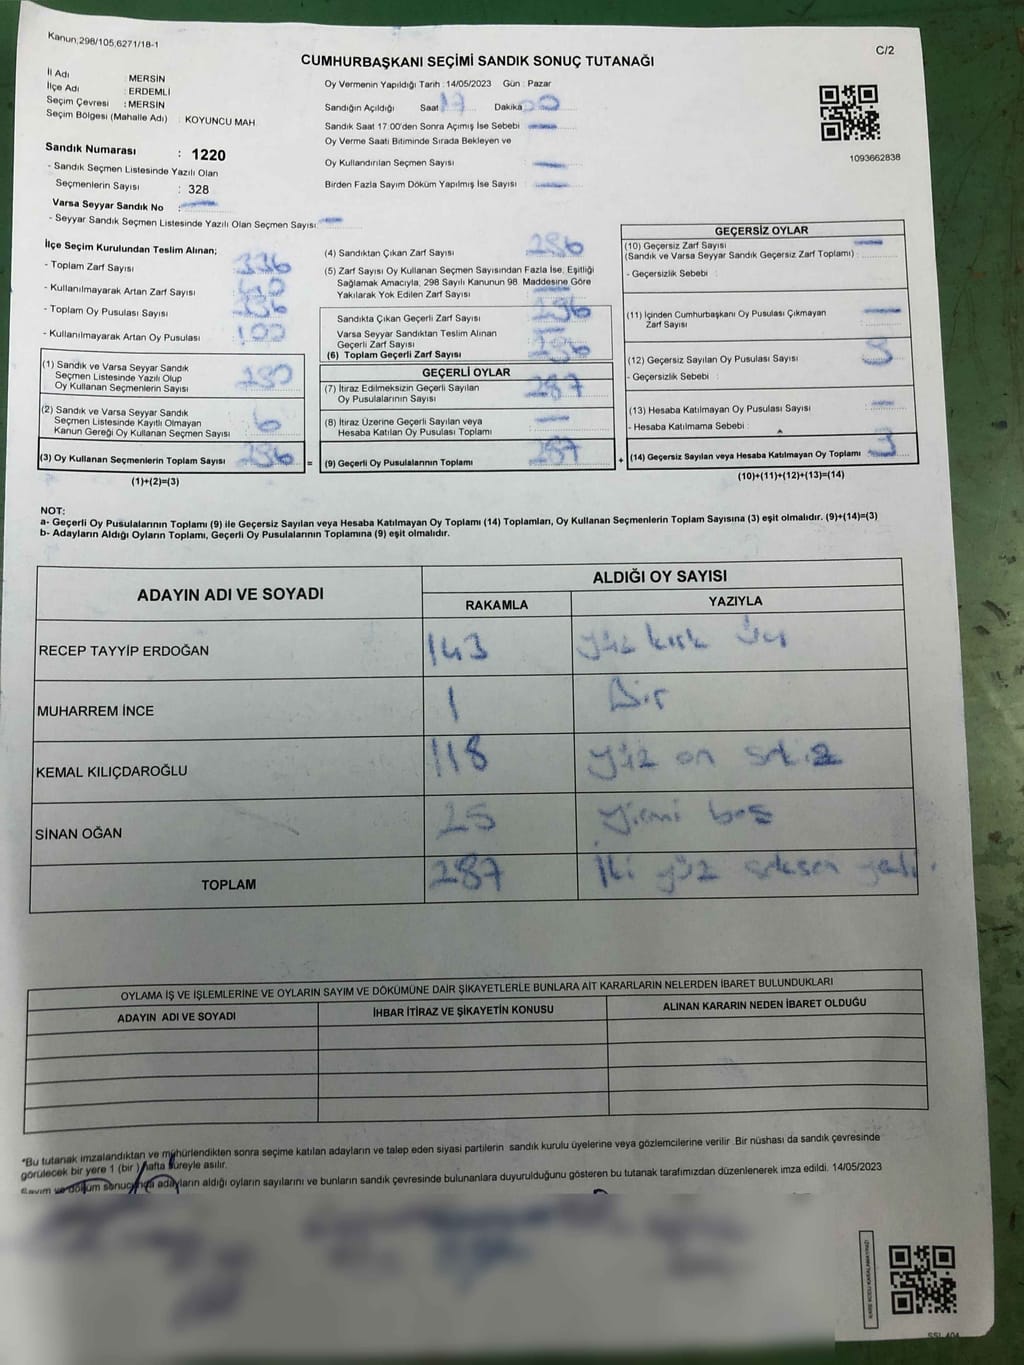 Kanun,298/105,6271/18-1
C/2
CUMHURBAŞKANI SEÇİMİ SANDIK SONUÇ TUTANAĞI
İl Adı : MERSİN
İlçe Adı : ERDEMLİ
Seçim Çevresi : MERSİN
Seçim Bölgesi (Mahalle Adı) : KOYUNCU MAH.
Sandık Numarası : 1220
- Sandık Seçmen Listesinde Yazılı Olan
Seçmenlerin Sayısı : 328
Varsa Seyyar Sandık No :
- Seyyar Sandık Seçmen Listesinde Yazılı Olan Seçmen Sayısı:
Oy Vermenin Yapıldığı Tarih : 14/05/2023 Gün : Pazar
Sandığın Açıldığı Saat 17 Dakika 00
Sandık Saat 17:00'den Sonra Açmış İse Sebebi
Oy Verme Saati Bitiminde Sırada Bekleyen ve
Oy Kullandırılan Seçmen Sayısı :
Birden Fazla Sayım Döküm Yapılmış İse Sayısı :
1093662838
İlçe Seçim Kurulundan Teslim Alınan;
- Toplam Zarf Sayısı : 336
- Kullanılmayarak Artan Zarf Sayısı :
- Toplam Oy Pusulası Sayısı :
- Kullanılmayarak Artan Oy Pusulası :
(1) Sandık ve Varsa Seyyar Sandık
Seçmen Listesinde Yazılı Olup
Oy Kullanan Seçmenlerin Sayısı :
(2) Sandık ve Varsa Seyyar Sandık
Seçmen Listesinde Kayıtlı Olmayan
Kanun Gereği Oy Kullanan Seçmen Sayısı : 6
(3) Oy Kullanan Seçmenlerin Toplam Sayısı :
(1)+(2)=(3)
(4) Sandıktan Çıkan Zarf Sayısı :
(5) Zarf Sayısı Oy Kullanan Seçmen Sayısından Fazla İse, Eşitliği
Sağlamak Amacıyla, 298 Sayılı Kanunun 98. Maddesine Göre
Yakılarak Yok Edilen Zarf Sayısı :
Sandıkta Çıkan Geçerli Zarf Sayısı :
Varsa Seyyar Sandıktan Teslim Alınan
Geçerli Zarf Sayısı :
(6) Toplam Geçerli Zarf Sayısı :
GEÇERLİ OYLAR
(7) İtiraz Edilmeksizin Geçerli Sayılan
Oy Pusulalarının Sayısı : 287
(8) İtiraz Üzerine Geçerli Sayılan veya
Hesaba Katılan Oy Pusulası Toplamı :
= (9) Geçerli Oy Pusulalarının Toplamı : 287
GEÇERSİZ OYLAR
(10) Geçersiz Zarf Sayısı
(Sandık ve Varsa Seyyar Sandık Geçersiz Zarf Toplamı) :
- Geçersizlik Sebebi :
(11) İçinden Cumhurbaşkanı Oy Pusulası Çıkmayan
Zarf Sayısı :
(12) Geçersiz Sayılan Oy Pusulası Sayısı : 3
- Geçersizlik Sebebi :
(13) Hesaba Katılmayan Oy Pusulası Sayısı :
- Hesaba Katılmama Sebebi :
+ (14) Geçersiz Sayılan veya Hesaba Katılmayan Oy Toplamı : 3
(10)+(11)+(12)+(13)=(14)
NOT:
a- Geçerli Oy Pusulalarının Toplamı (9) ile Geçersiz Sayılan veya Hesaba Katılmayan Oy Toplamı (14) Toplamları, Oy Kullanan Seçmenlerin Toplam Sayısına (3) eşit olmalıdır. (9)+(14)=(3)
b- Adayların Aldığı Oyların Toplamı, Geçerli Oy Pusulalarının Toplamına (9) eşit olmalıdır.
ADAYIN ADI VE SOYADI
ALDIĞI OY SAYISI
RAKAMLA YAZIYLA
RECEP TAYYİP ERDOĞAN 143 yüz kırk üç
MUHARREM İNCE 1 Bir
KEMAL KILIÇDAROĞLU 118 yüz on sekiz
SİNAN OĞAN 25 yirmi beş
TOPLAM 287 İki yüz seksen yedi
OYLAMA İŞ VE İŞLEMLERİNE VE OYLARIN SAYIM VE DÖKÜMÜNE DAİR ŞİKAYETLERLE BUNLARA AİT KARARLARIN NELERDEN İBARET BULUNDUKLARI
ADAYIN ADI VE SOYADI İHBAR İTİRAZ VE ŞİKAYETİN KONUSU ALINAN KARARIN NEDEN İBARET OLDUĞU
*Bu tutanak imzalandıktan ve mühürlendikten sonra seçime katılan adayların ve talep eden siyasi partilerin sandık kurulu üyelerine veya gözlemcilerine verilir. Bir nüshası da sandık çevresinde
görülecek bir yere 1 (bir) hafta süreyle asılır.
Sayım ve döküm sonucunda adayların aldığı oyların sayılarını ve bunların sandık çevresinde bulunanlara duyurulduğunu gösteren bu tutanak tarafımızdan düzenlenerek imza edildi. 14/05/2023
KARE KODU KARALAMAYINIZ!